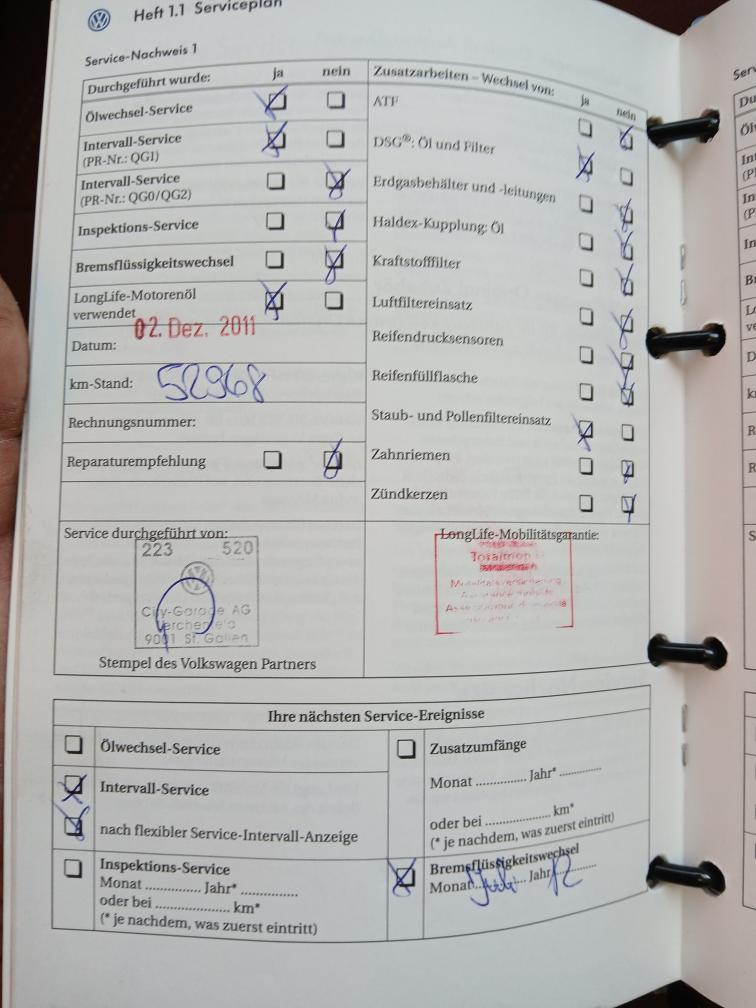 Heft 1.1 Serviceplan
Service-Nachweis 1
Durchgeführt wurde: ja nein
Ölwechsel-Service
Intervall-Service
(PR-Nr.: QG1)
Intervall-Service
(PR-Nr.: QG0/QG2)
Inspektions-Service
Bremsflüssigkeitswechsel
LongLife-Motorenöl
verwendet
Datum: 02. Dez. 2011
km-Stand: 52968
Rechnungsnummer:
Reparaturempfehlung
Zusatzarbeiten – Wechsel von: ja nein
ATF
DSG®: Öl und Filter
Erdgasbehälter und -leitungen
Haldex-Kupplung: Öl
Kraftstofffilter
Luftfiltereinsatz
Reifendrucksensoren
Reifenfüllflasche
Staub- und Pollenfiltereinsatz
Zahnriemen
Zündkerzen
Service durchgeführt von:
223 520
City-Garage AG
9001 St. Gallen
Stempel des Volkswagen Partners
LongLife-Mobilitätsgarantie:
Ihre nächsten Service-Ereignisse
Ölwechsel-Service
Intervall-Service
nach flexibler Service-Intervall-Anzeige
Inspektions-Service
Monat ............... Jahr* ...............
oder bei .................... km*
(* je nachdem, was zuerst eintritt)
Zusatzumfänge
Monat .............. Jahr* ..............
oder bei .................... km*
(* je nachdem, was zuerst eintritt)
Bremsflüssigkeitswechsel
Monat Juli Jahr 12